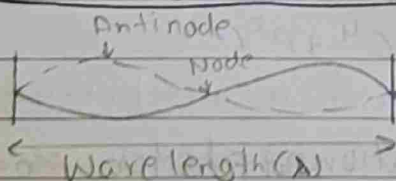 Antinode
Node
Wavelength(λ)